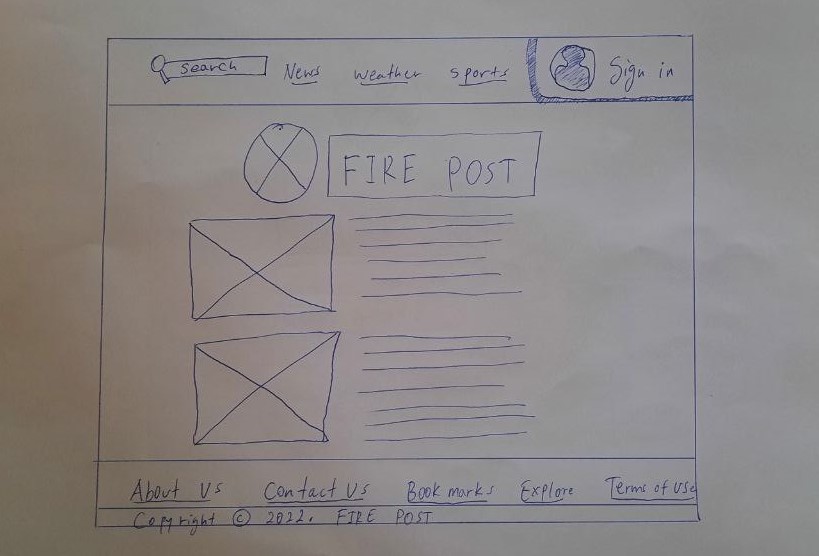 Search News Weather Sports Sign in
FIRE POST
About Us Contact Us Bookmarks Explore Terms of use
Copyright © 2022. FIRE POST